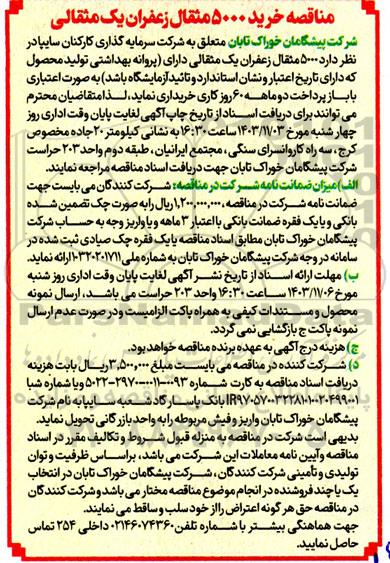 مناقصه خرید ۵۰۰۰ مثقال زعفران یک مثقالی
شرکت پیشگامان خوراک تابان متعلق به شرکت سرمایه گذاری کارکنان سایپا در
نظر دارد ۵۰۰۰ مثقال زعفران یک مثقالی دارای (پروانه بهداشتی تولید محصول
که دارای تاریخ اعتبار و نشان استاندارد و تائید آزمایشگاه باشد) به صورت اعتباری
با باز پرداخت دو ماهه ۶۰ روز کاری خریداری نماید، لذا متقاضیان محترم
می توانند برای دریافت اسناد از تاریخ چاپ آگهی لغایت پایان وقت اداری روز
چهار شنبه مورخ ۱۴۰۳/۱۱/۰۳ ساعت ۱۶:۳۰ به نشانی کیلومتر ۲۰ جاده مخصوص
کرج، سه راه کاروانسرای سنگی، مجتمع ایرانیان، طبقه دوم واحد ۲۰۳ حراست
شرکت پیشگامان خوراک تابان جهت دریافت اسناد مناقصه مراجعه نمایند.
الف) میزان ضمانت نامه شرکت در مناقصه: شرکت کنندگان می بایست جهت
ضمانت نامه شرکت در مناقصه، ۱,۲۰۰,۰۰۰,۰۰۰ ریال را به صورت چک تضمین شده
بانکی و یا یک فقره ضمانت بانکی با اعتبار ۳ ماهه و یا واریز وجه به حساب شرکت
پیشگامان خوراک تابان مطابق اسناد مناقصه یا یک فقره چک صیادی ثبت شده در
سامانه در وجه شرکت پیشگامان خوراک تابان به شماره ملی ۱۰۳۲۰۲۰۱۷۱۱ ارائه نماید.
ب) مهلت ارائه اسناد از تاریخ نشر آگهی لغایت پایان وقت اداری روز شنبه
مورخ ۱۴۰۳/۱۱/۰۶ ساعت ۱۶:۳۰ واحد ۲۰۳ حراست می باشد، ارسال نمونه
محصول و مستندات کیفی به همراه پاکت الزامیست و در صورت عدم ارسال
نمونه پاکت ج بازگشایی نمی گردد.
ج) هزینه درج آگهی به عهده برنده مناقصه خواهد بود.
د) شرکت کننده در مناقصه می بایست مبلغ ۳,۵۰۰,۰۰۰ ریال بابت هزینه
دریافت اسناد مناقصه به کارت شماره ۵۰۲۲-۲۹۷۰-۰۰۱۱-۰۰۹۳ و یا شماره شبا
بانک پاسارگاد شعبه سایپا به نام شرکت
پیشگامان خوراک تابان واریز و فیش مربوطه را به واحد بازرگانی تحویل نماید.
بدیهی است شرکت در مناقصه به منزله قبول شروط و تکالیف مقرر در اسناد
مناقصه و آیین نامه معاملات این شرکت می باشد، بر اساس ظرفیت و توان
تولیدی و تأمینی شرکت کنندگان، شرکت پیشگامان خوراک تابان در انتخاب
یک یا چند فروشنده در انجام موضوع مناقصه مختار می باشد و شرکت کنندگان
در مناقصه حق هر گونه اعتراض را از خود سلب و ساقط می نمایند.
جهت هماهنگی بیشتر با شماره تلفن ۰۲۱۴۶۰۷۴۳۶۰ داخلی ۲۵۴ تماس
حاصل نمایید.